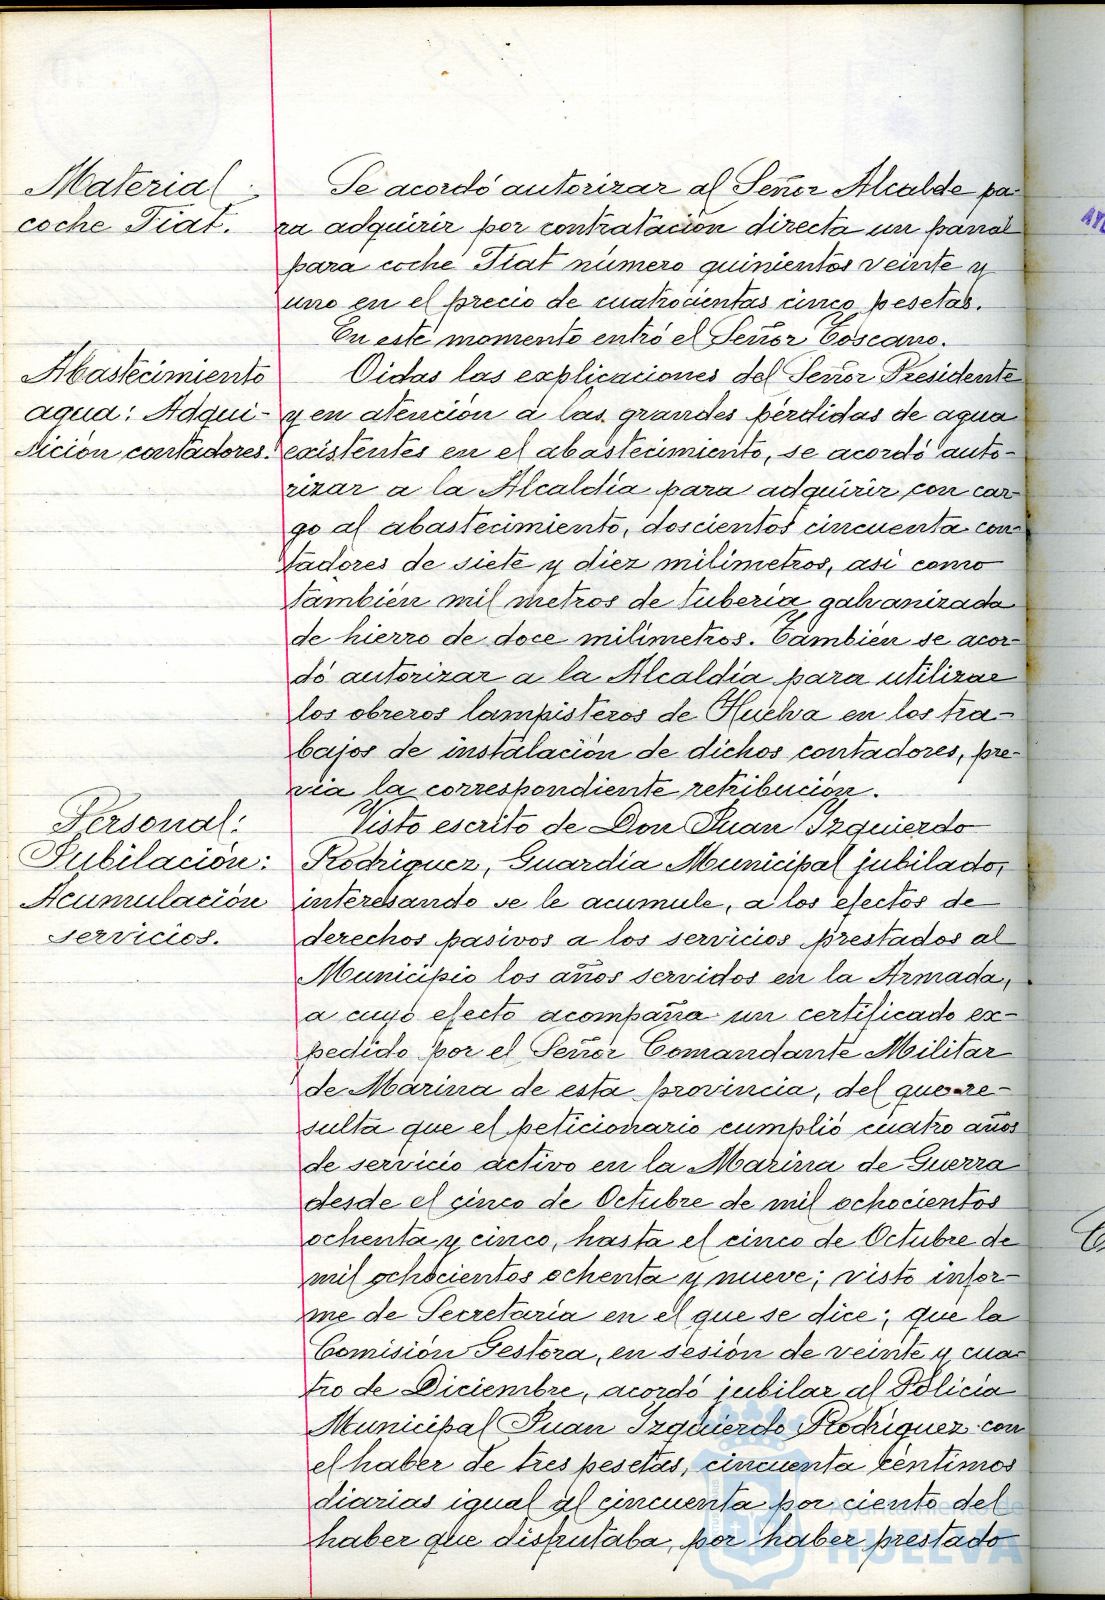 Material
coche Fiat.
Se acordó autorizar al Señor Alcalde pa-
ra adquirir por contratación directa un panal
para coche Fiat número quinientos veinte y
uno en el precio de cuatrocientas cinco pesetas.
En este momento entró el Señor Toscano.
Abastecimiento
agua: Adqui-
sición contadores.
Oidas las explicaciones del Señor Presidente
y en atención a las grandes pérdidas de agua
existentes en el abastecimiento, se acordó auto-
rizar a la Alcaldía para adquirir con car-
go al abastecimiento, doscientos cincuenta con-
tadores de siete y diez milímetros, así como
también mil metros de tubería galvanizada
de hierro de doce milímetros. También se acor-
dó autorizar a la Alcaldía para utilizar
los obreros lampisteros de Huelva en los tra-
bajos de instalación de dichos contadores, pre-
via la correspondiente retribución.
Personal:
Jubilación:
Acumulación
servicios.
Visto escrito de Don Juan Izquierdo
Rodríguez, Guardia Municipal jubilado,
interesando se le acumule, a los efectos de
derechos pasivos a los servicios prestados al
Municipio los años servidos en la Armada,
a cuyo efecto acompaña un certificado ex-
pedido por el Señor Comandante Militar
de Marina de esta provincia, del que re-
sulta que el peticionario cumplió cuatro años
de servicio activo en la Marina de Guerra
desde el cinco de Octubre de mil ochocientos
ochenta y cinco, hasta el cinco de Octubre de
mil ochocientos ochenta y nueve; visto infor-
me de Secretaría en el que se dice; que la
Comisión Gestora, en sesión de veinte y cua-
tro de Diciembre, acordó jubilar al Policía
Municipal Juan Izquierdo Rodríguez con
el haber de tres pesetas, cincuenta céntimos
diarias igual al cincuenta por ciento del
haber que disfrutaba, por haber prestado
Ayuntamiento de
HUELVA